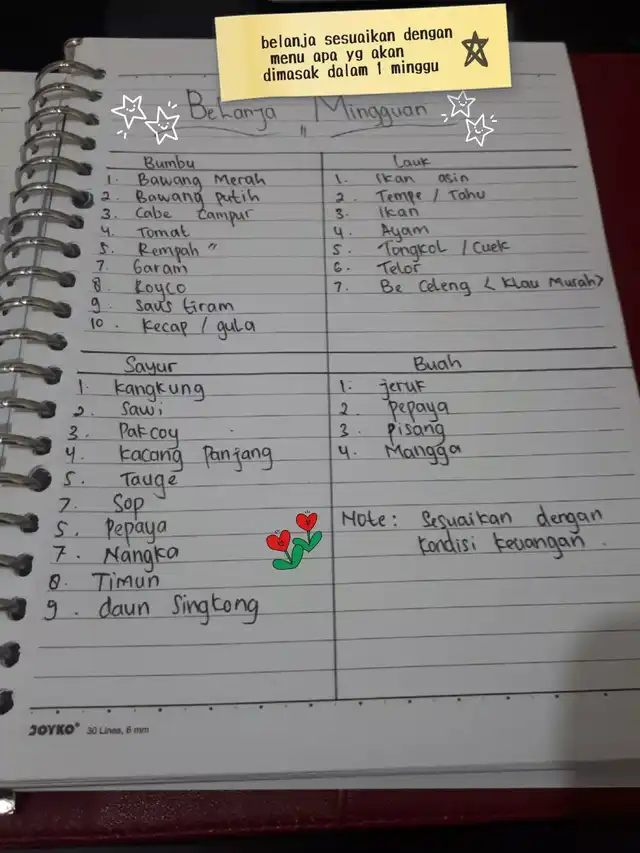 belanja sesuaikan dengan
menu apa yg akan
dimasak dalam 1 minggu
Belanja Mingguan
Bumbu
1. Bawang Merah
2. Bawang putih
3. Cabe campur
4. Tomat
5. Rempah "
7. Garam
8. Royco
9. Saus tiram
10. Kecap / gula
Lauk
1. Ikan asin
2. Tempe / Tahu
3. Ikan
4. Ayam
5. Tongkol / Cuek
6. Telor
7. Be Celeng < Klau Murah >
Sayur
1. Kangkung
2. Sawi
3. Pakcoy
4. Kacang Panjang
5. Tauge
7. Sop
5. Pepaya
7. Nangka
8. Timun
9. daun Singkong
Buah
1. jeruk
2. Pepaya
3. Pisang
4. Mangga
Note: Sesuaikan dengan
kondisi keuangan.
JOYKO® 30 Lines, 6 mm